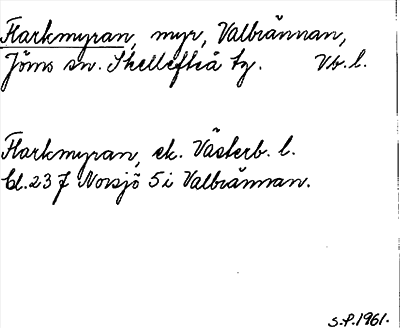 Flarkmyran, myr, Valbrännan,
Jörns sn. Skellefteå tg. Vb. l.
Flarkmyran, ek. Västerb. l.
bl. 23 J Norsjö 5 i Valbrännan.
S.P. 1961.